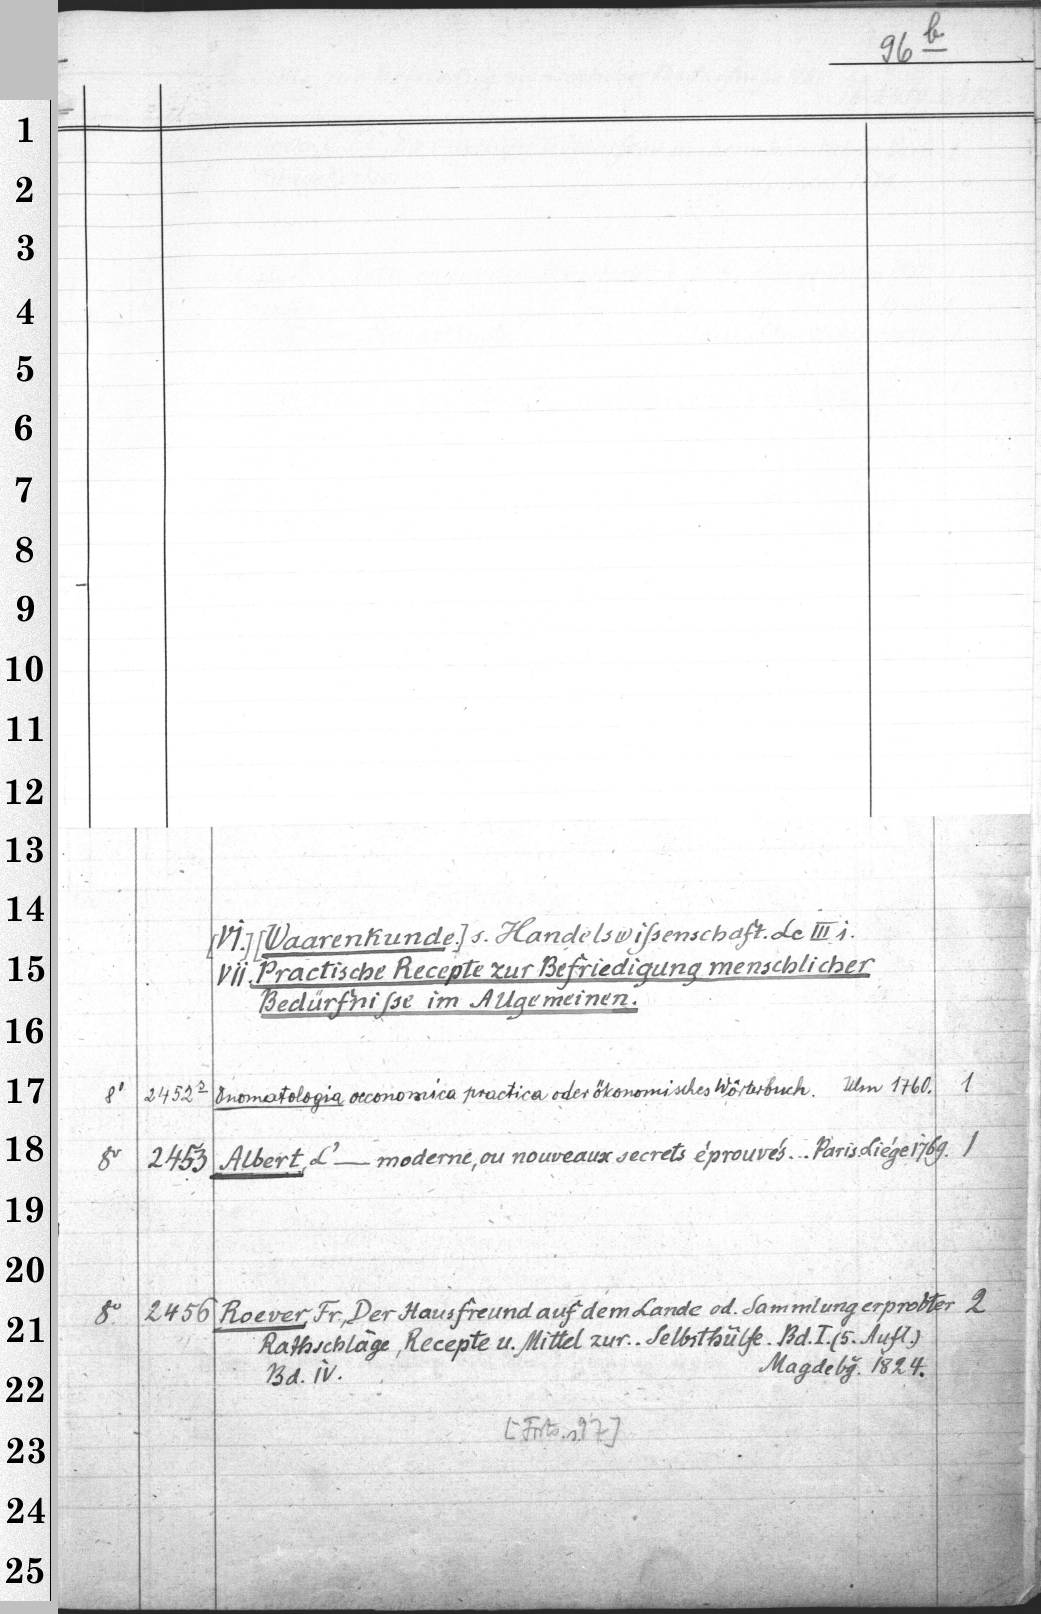 96 b
1
2
3
4
5
6
7
8
9
10
11
12
13
14
[VI.] [Waarenkunde.] s. Handelswißenschaft. Lc III i.
15
VII. Practische Recepte zur Befriedigung menschlicher
Bedürfniße im Allgemeinen.
16
17
8° 2452a Onomatologia oeconomica practica oder ökonomisches Wörterbuch. Ulm 1760. 1
18
8° 2453 Albert, L'— moderne, ou nouveaux secrets éprouvés... Paris. Liége 1769. 1
19
20
8° 2456 Roever, Fr., Der Hausfreund auf dem Lande od. Sammlung erprobter 2
21
Rathschläge, Recepte u. Mittel zur.. Selbsthülfe. Bd. I. (5. Aufl.)
22
Bd. IV. Magdebg. 1824.
[Frts. s. 97]
23
24
25